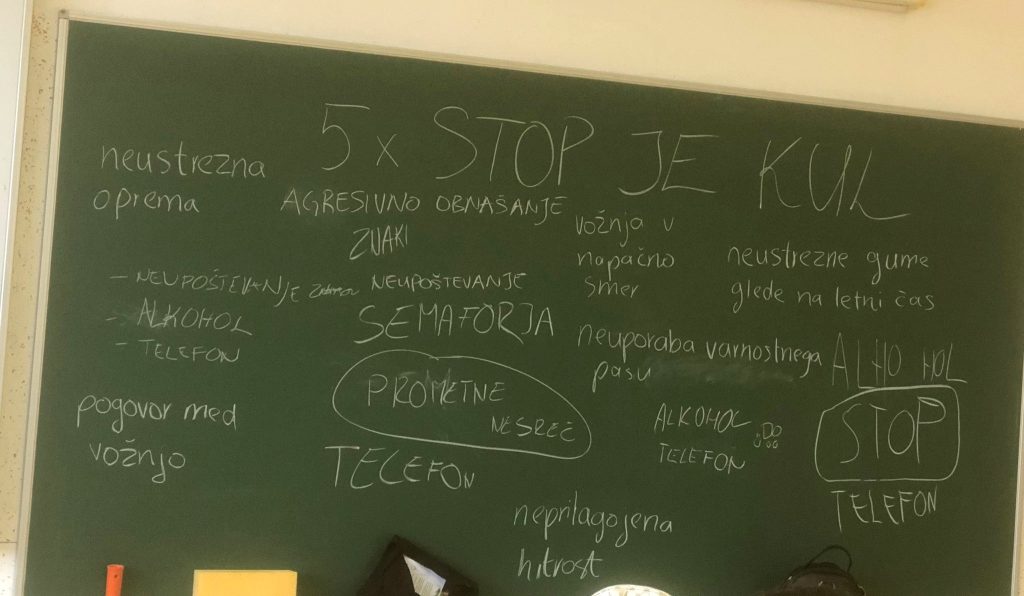 5 x STOP JE KUL
neustrezna
oprema
AGRESIVNO OBNAŠANJE
ZNAKI
vožnja v
napačno
smer
neustrezne gume
glede na letni čas
- NEUPOŠTEVANJE
- ALKOHOL
- TELEFON
NEUPOŠTEVANJE
SEMAFORJA
neuporaba varnostnega
pasu
ALHO HOL
STOP
TELEFON
PROMETNE
NESREČ
ALKOHOL
TELEFON
pogovor med
vožnjo
TELEFON
neprilagojena
hitrost